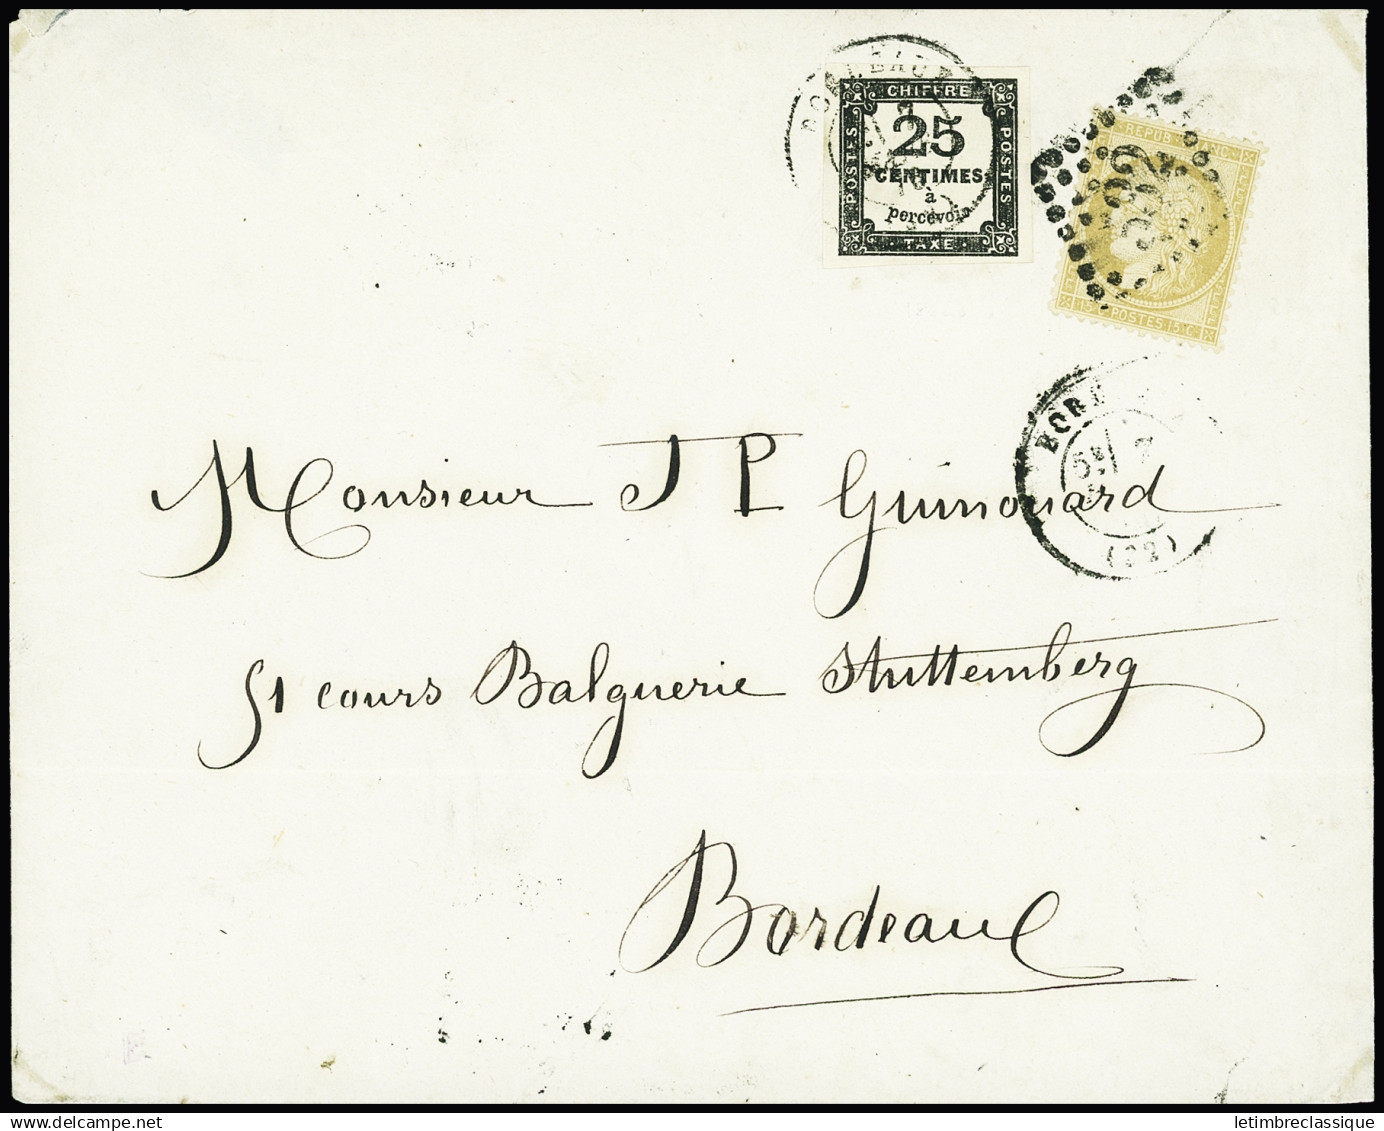 CHIFFRE
POSTES
25
CENTIMES
à
percevoir
POSTES
TAXE
REPUB FRANC
15 C POSTES 15 C
532
BORD
(32)
Monsieur J P Guimouard
51 cours Balguerie Stuttemberg
Bordeaux
letimbreclassique